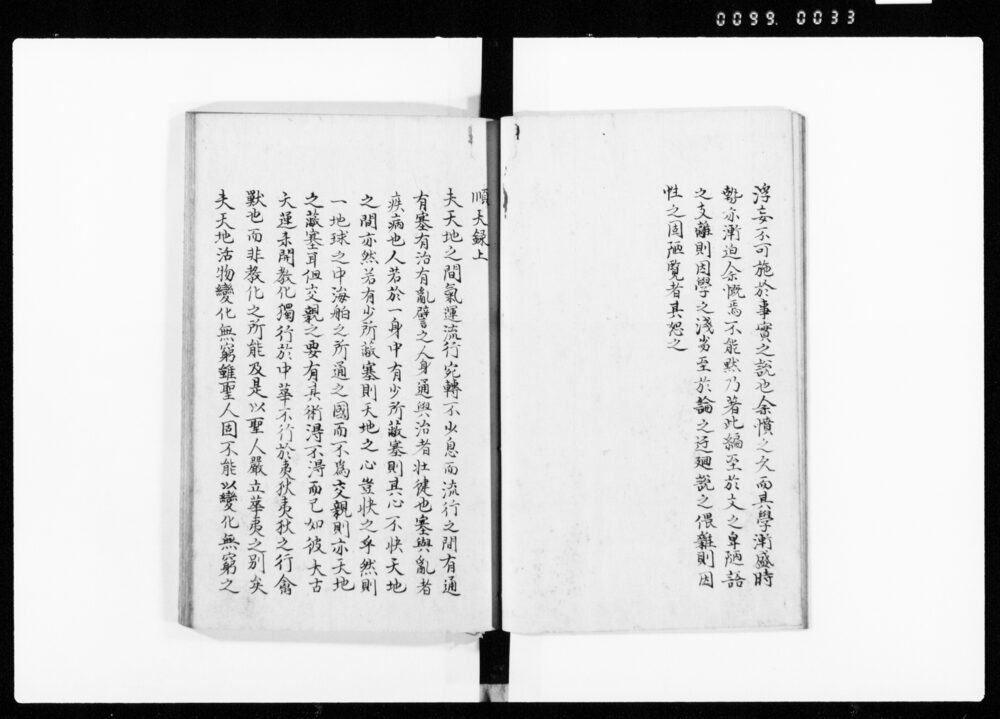 0099. 0033
浮妄不可施於事實之說也余憤之久而其學漸盛時
勢亦漸迫余慨焉不能默乃著此編至於文之卑陋語
之支離則因學之淺劣至於論之迂廻說之偎雜則因
性之固陋覧者其恕之
順天録上
夫天地之間氣運流行宛轉不少息而流行之間有通
有塞有治有亂譬之人身通與治者壮健也塞與亂者
疾病也人若於一身中有少所蔽塞則其心不快天地
之間亦然若有少所蔽塞則天地之心豈快之乎然則
一地球之中海舶之所通之國而不爲交親則亦天地
之蔽塞耳但交親之要有其術得不得而已如彼大古
天運未開教化獨行於中華不行於夷狄夷狄之行禽
獸也而非教化之所能及是以聖人嚴立華夷之別矣
夫天地活物變化無窮雖聖人固不能以變化無窮之